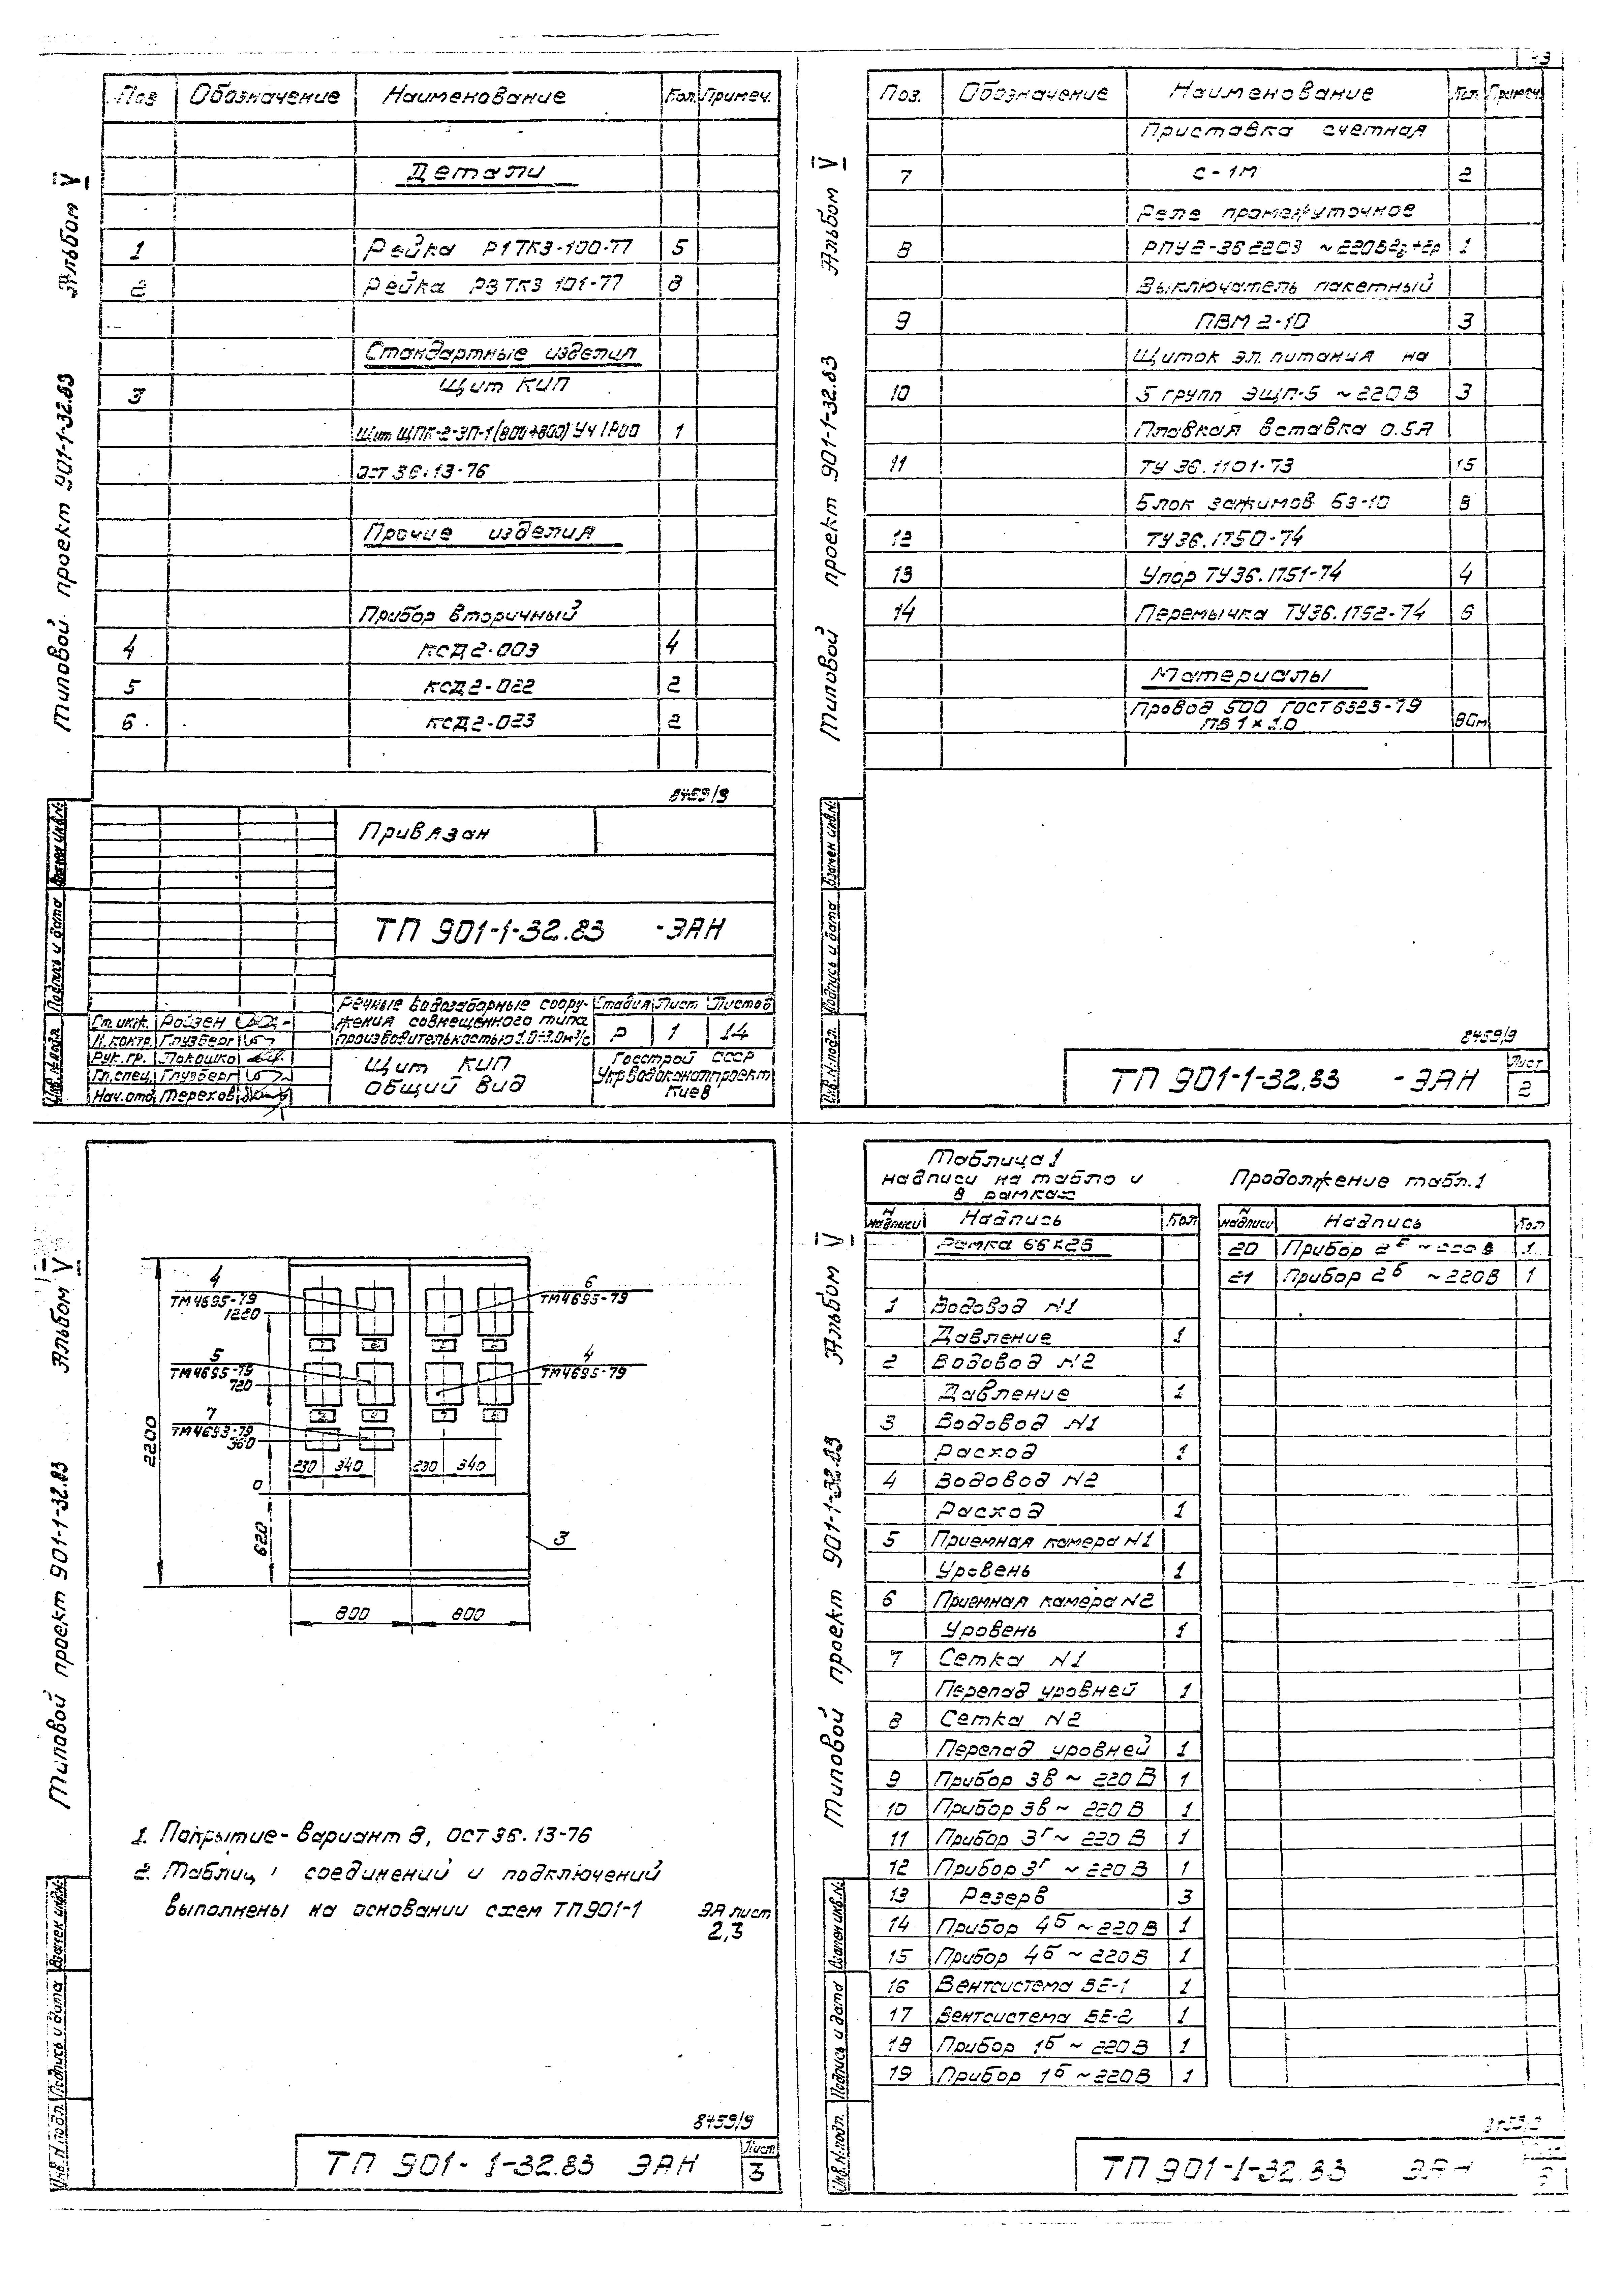 Альбом V
Типовой проект 901-1-32.83
Поз Обозначение Наименование Кол. Примеч.
Детали
1 Рейка Р1ТК3-100-77 5
2 Рейка ТК3 101-77 8
Стандартные изделия
3 Щит КИП
Щит ЩПК-2-ЗП-1(800+800) УЧ IP00 1
ОСТ 36.13-76
Прочие изделия
Прибор вторичный
4 КСД2-003 4
5 КСД2-022 2
6 КСД2-023 2
8459/9
Привязан
ТП 901-1-32.83 -ЭАН
Речные водозаборные соору- Стадия Лист Листов
жения совмещенного типа
производительностью 1.0÷3.0м³/с Р 1 14
Щит КИП
Общий вид
Госстрой СССР
Укрводоканалпроект
Киев
Ст. инж. Ройзен
Н. контр. Глузберг
Рук. гр. Покошко
Гл. спец. Глузберг
Нач. отд. Терехов
Взамен инв.N
Подпись и дата
Инв. N подл.
Альбом V
Типовой проект 901-1-32.83
Поз. Обозначение Наименование Кол. Примеч.
Приставка счетная
7 С-1М 2
Реле промежуточное
8 РПУ2-362203 ~220В 2з.+2р 1
Выключатель пакетный
9 ПВМ 2-10 3
Щиток эл. питания на
10 5 групп ЭЩП-5 ~220В 3
Плавкая вставка 0.5А
11 ТУ 36.1101-73 15
Блок зажимов БЗ-10 8
12 ТУ36.1750-74
13 Упор ТУ36.1751-74 4
14 Перемычка ТУ36.1752-74 6
Материалы
Провод 500 ГОСТ 6323-79
ПВ 1×1.0 80м
Взамен инв.N
Подпись и дата
Инв. N подл.
8459/9
ТП 901-1-32.83 -ЭАН Лист
2
Альбом V
Типовой проект 901-1-32.83
4
ТМ4695-79
1220
6
ТМ4695-79
5
ТМ4695-79
720
4
ТМ4695-79
7
ТМ4693-79
360
230 340 230 340
0
2200
620
3
800 800
1. Покрытие-вариант 2, ОСТ 36.13-76
2. Таблиц соединений и подключений
выполнены на основании схем ТП901-1 ЭА лист
2,3
Взамен инв.N
Подпись и дата
Инв. N подл.
8459/9
ТП 901-1-32.83 ЭАН Лист
3
Альбом V
Типовой проект 901-1-32.83
Таблица 1
надписи на табло и
в рамках
N надписи Надпись Кол
Рамка 66×26
1 Водовод N1
Давление 1
2 Водовод N2
Давление 1
3 Водовод N1
Расход 1
4 Водовод N2
Расход 1
5 Приемная камера N1
Уровень 1
6 Приемная камера N2
Уровень 1
7 Сетка N1
Перепад уровней 1
8 Сетка N2
Перепад уровней 1
9 Прибор 3в ~ 220 В 1
10 Прибор 3в ~ 220 В 1
11 Прибор 3г ~ 220 В 1
12 Прибор 3г ~ 220 В 1
13 Резерв 3
14 Прибор 4б ~ 220 В 1
15 Прибор 4б ~ 220 В 1
16 Вентсистема ВЕ-1 1
17 Вентсистема ВЕ-2 1
18 Прибор 1б ~ 220 В 1
19 Прибор 1б ~ 220В 1
Продолжение табл. 1
N надписи Надпись Кол
20 Прибор 2б ~ 220 В 1
21 Прибор 2б ~ 220В 1
Взамен инв.N
Подпись и дата
Инв. N подл.
ТП 901-1-32.83 ЭАН